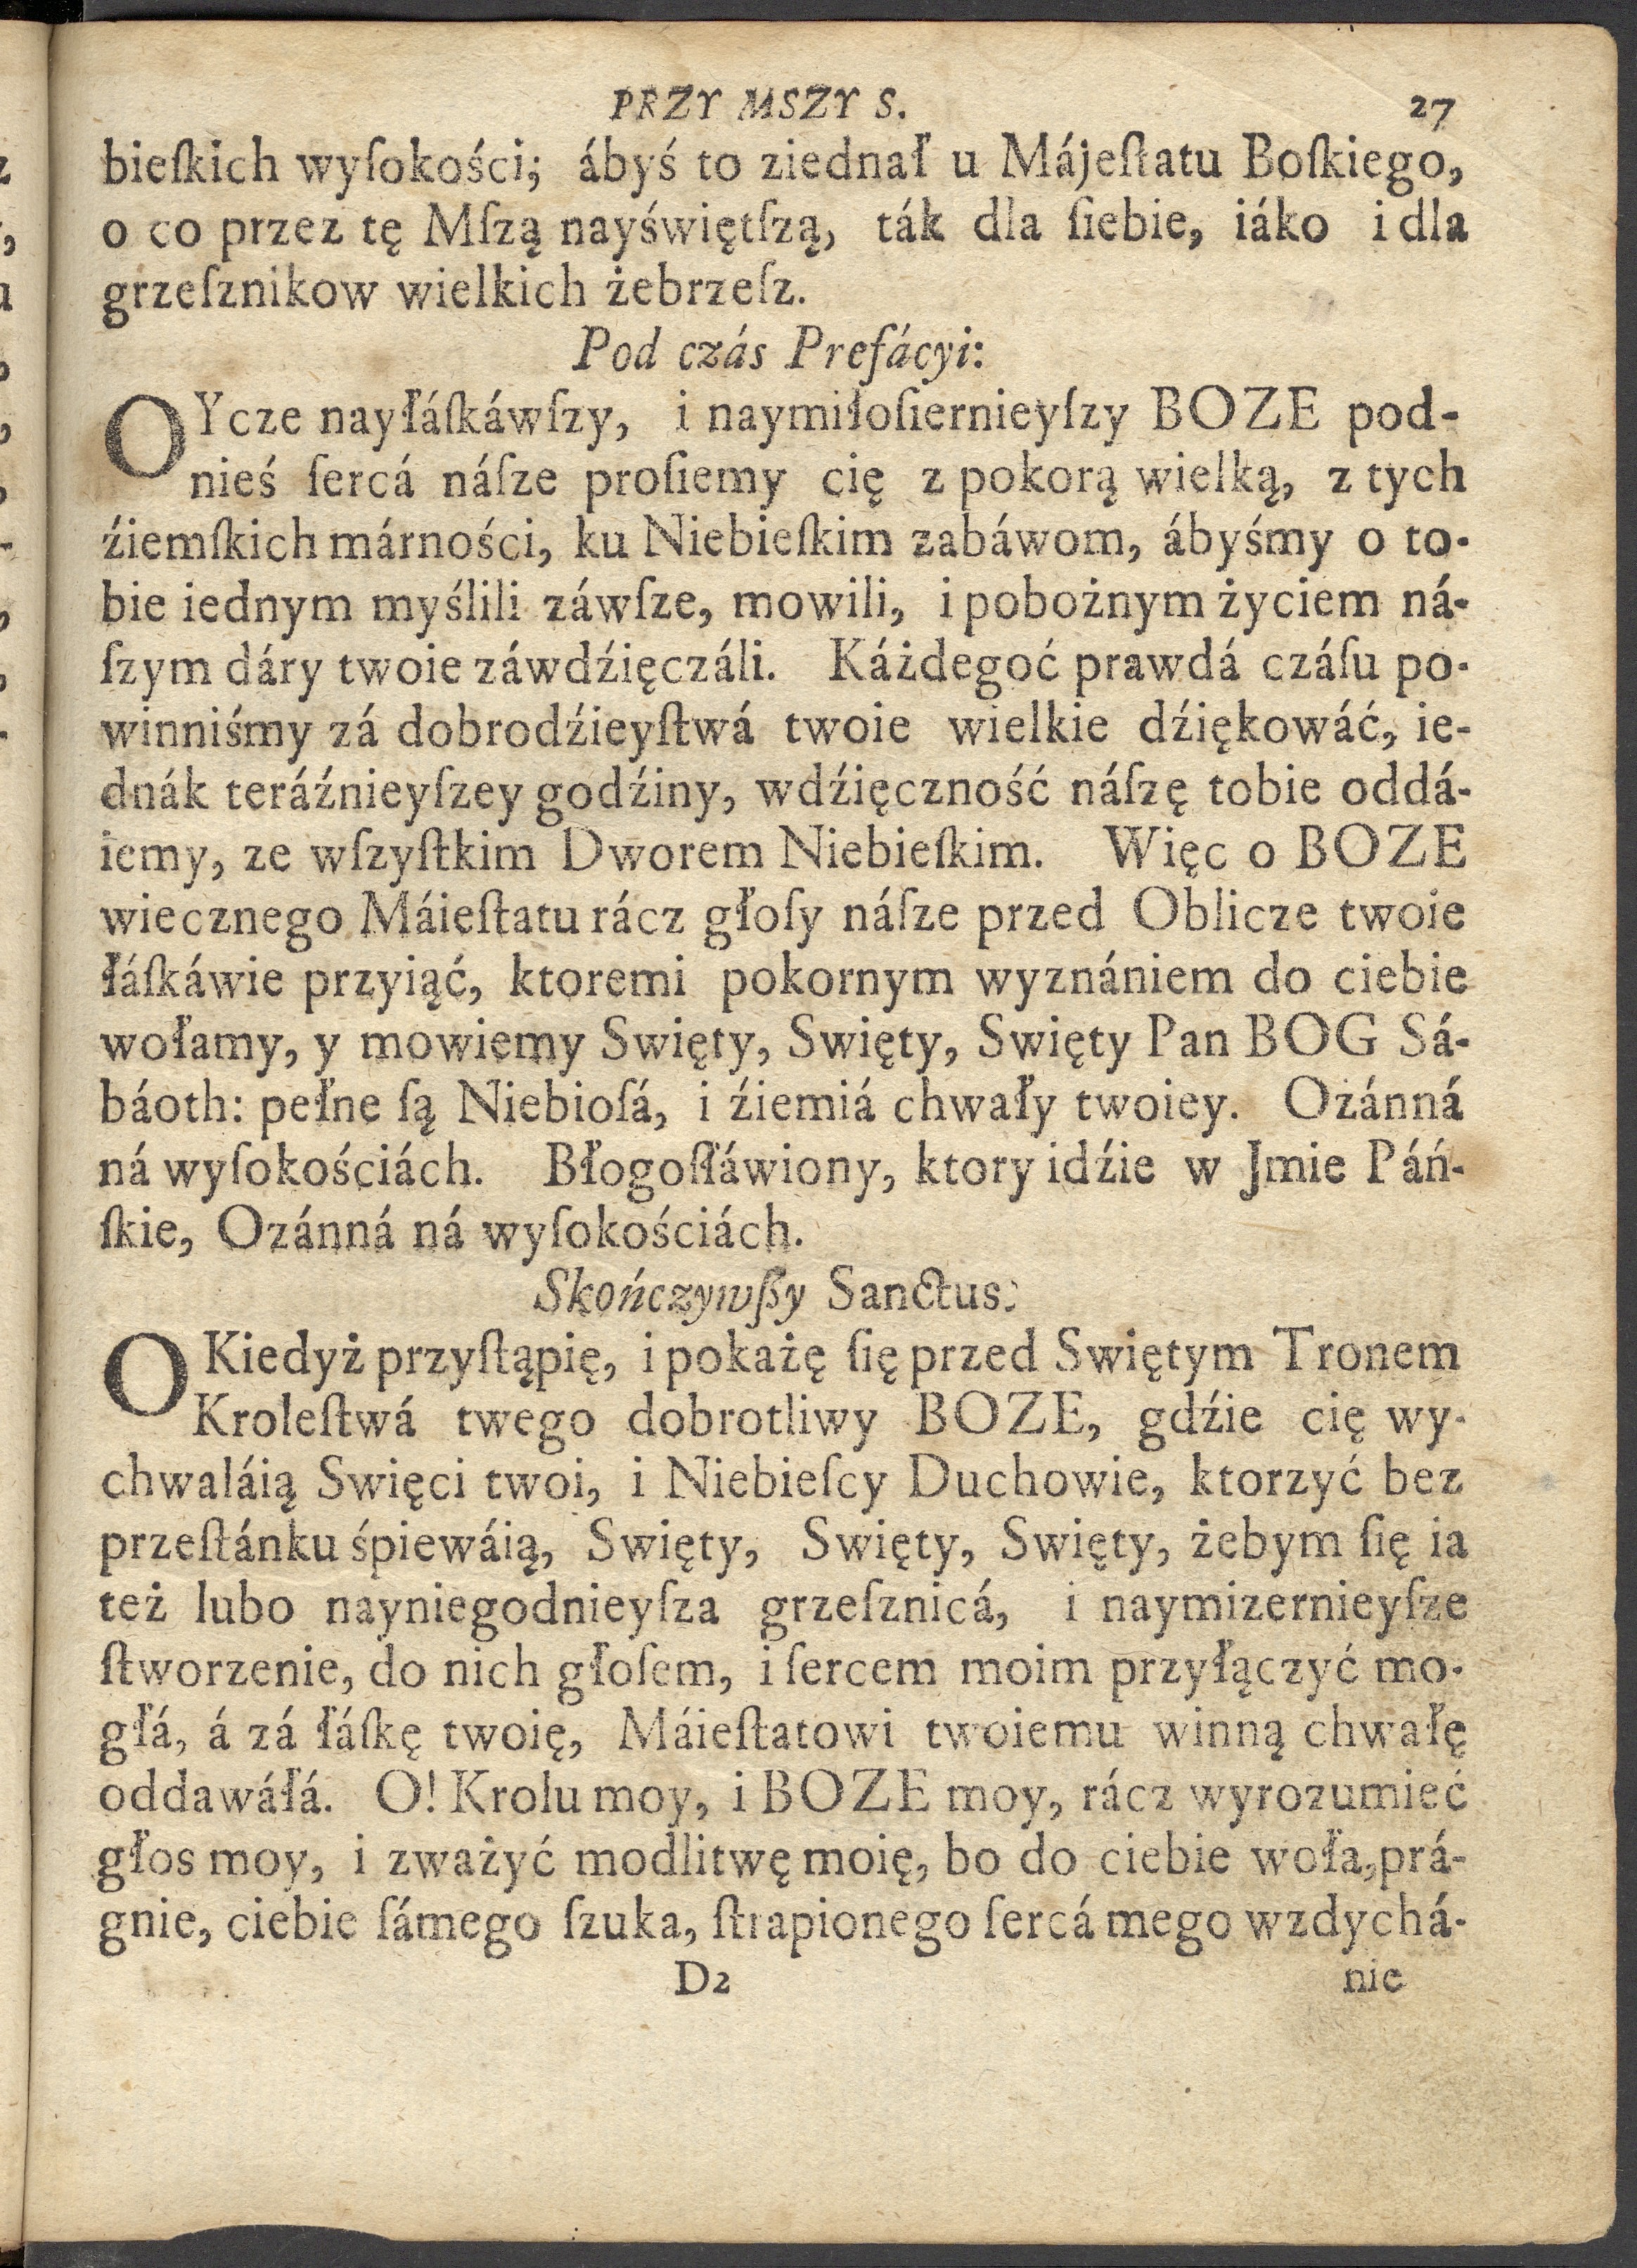 PRZY MSZY S. 27
bieſkich wyſokości; ábyś to ziednał u Májeſtatu Boſkiego,
o co przez tę Mſzą nayświętſzą, ták dla ſiebie, iáko i dla
grzeſznikow wielkich żebrzeſz.
Pod czás Prefácyi:
OYcze nayłáſkáwſzy, i naymiłoſiernieyſzy BOZE pod-
nieś ſercá náſze proſiemy cię z pokorą wielką, z tych
źiemſkich márności, ku Niebieſkim zabáwom, ábyśmy o to-
bie iednym myślili záwſze, mowili, i pobożnym życiem ná-
ſzym dáry twoie záwdźięczáli. Káżdegoć prawdá czáſu po-
winniśmy zá dobrodźieyſtwá twoie wielkie dźiękowáć, ie-
dnák teráźnieyſzey godźiny, wdźięczność náſzę tobie oddá-
iemy, ze wſzyſtkim Dworem Niebieſkim. Więc o BOZE
wiecznego Máieſtatu rácz głoſy náſze przed Oblicze twoie
łáſkáwie przyiąć, ktoremi pokornym wyznániem do ciebie
wołamy, y mowiemy Swięty, Swięty, Swięty Pan BOG Sá-
báoth: pełne ſą Niebioſá, i źiemiá chwały twoiey. Ozánná
ná wyſokościách. Błogoſłáwiony, ktory idźie w Jmie Páń-
ſkie, Ozánná ná wyſokościách.
Skończywſzy Sanctus:
O Kiedyż przyſtąpię, i pokażę ſię przed Swiętym Tronem
Kroleſtwá twego dobrotliwy BOZE, gdźie cię wy-
chwaláią Swięci twoi, i Niebieſcy Duchowie, ktorzyć bez
przeſtánku śpiewáią, Swięty, Swięty, Swięty, żebym ſię ia
też lubo nayniegodnieyſza grzeſznicá, i naymizernieyſze
ſtworzenie, do nich głoſem, i ſercem moim przyłączyć mo-
głá, á zá łáſkę twoię, Máieſtatowi twoiemu winną chwałę
oddawáłá. O! Krolu moy, i BOZE moy, rácz wyrozumieć
głos moy, i zważyć modlitwę moię, bo do ciebie woła, prá-
gnie, ciebie ſámego ſzuka, ſtrapionego ſercá mego wzdychá-
D2 nie